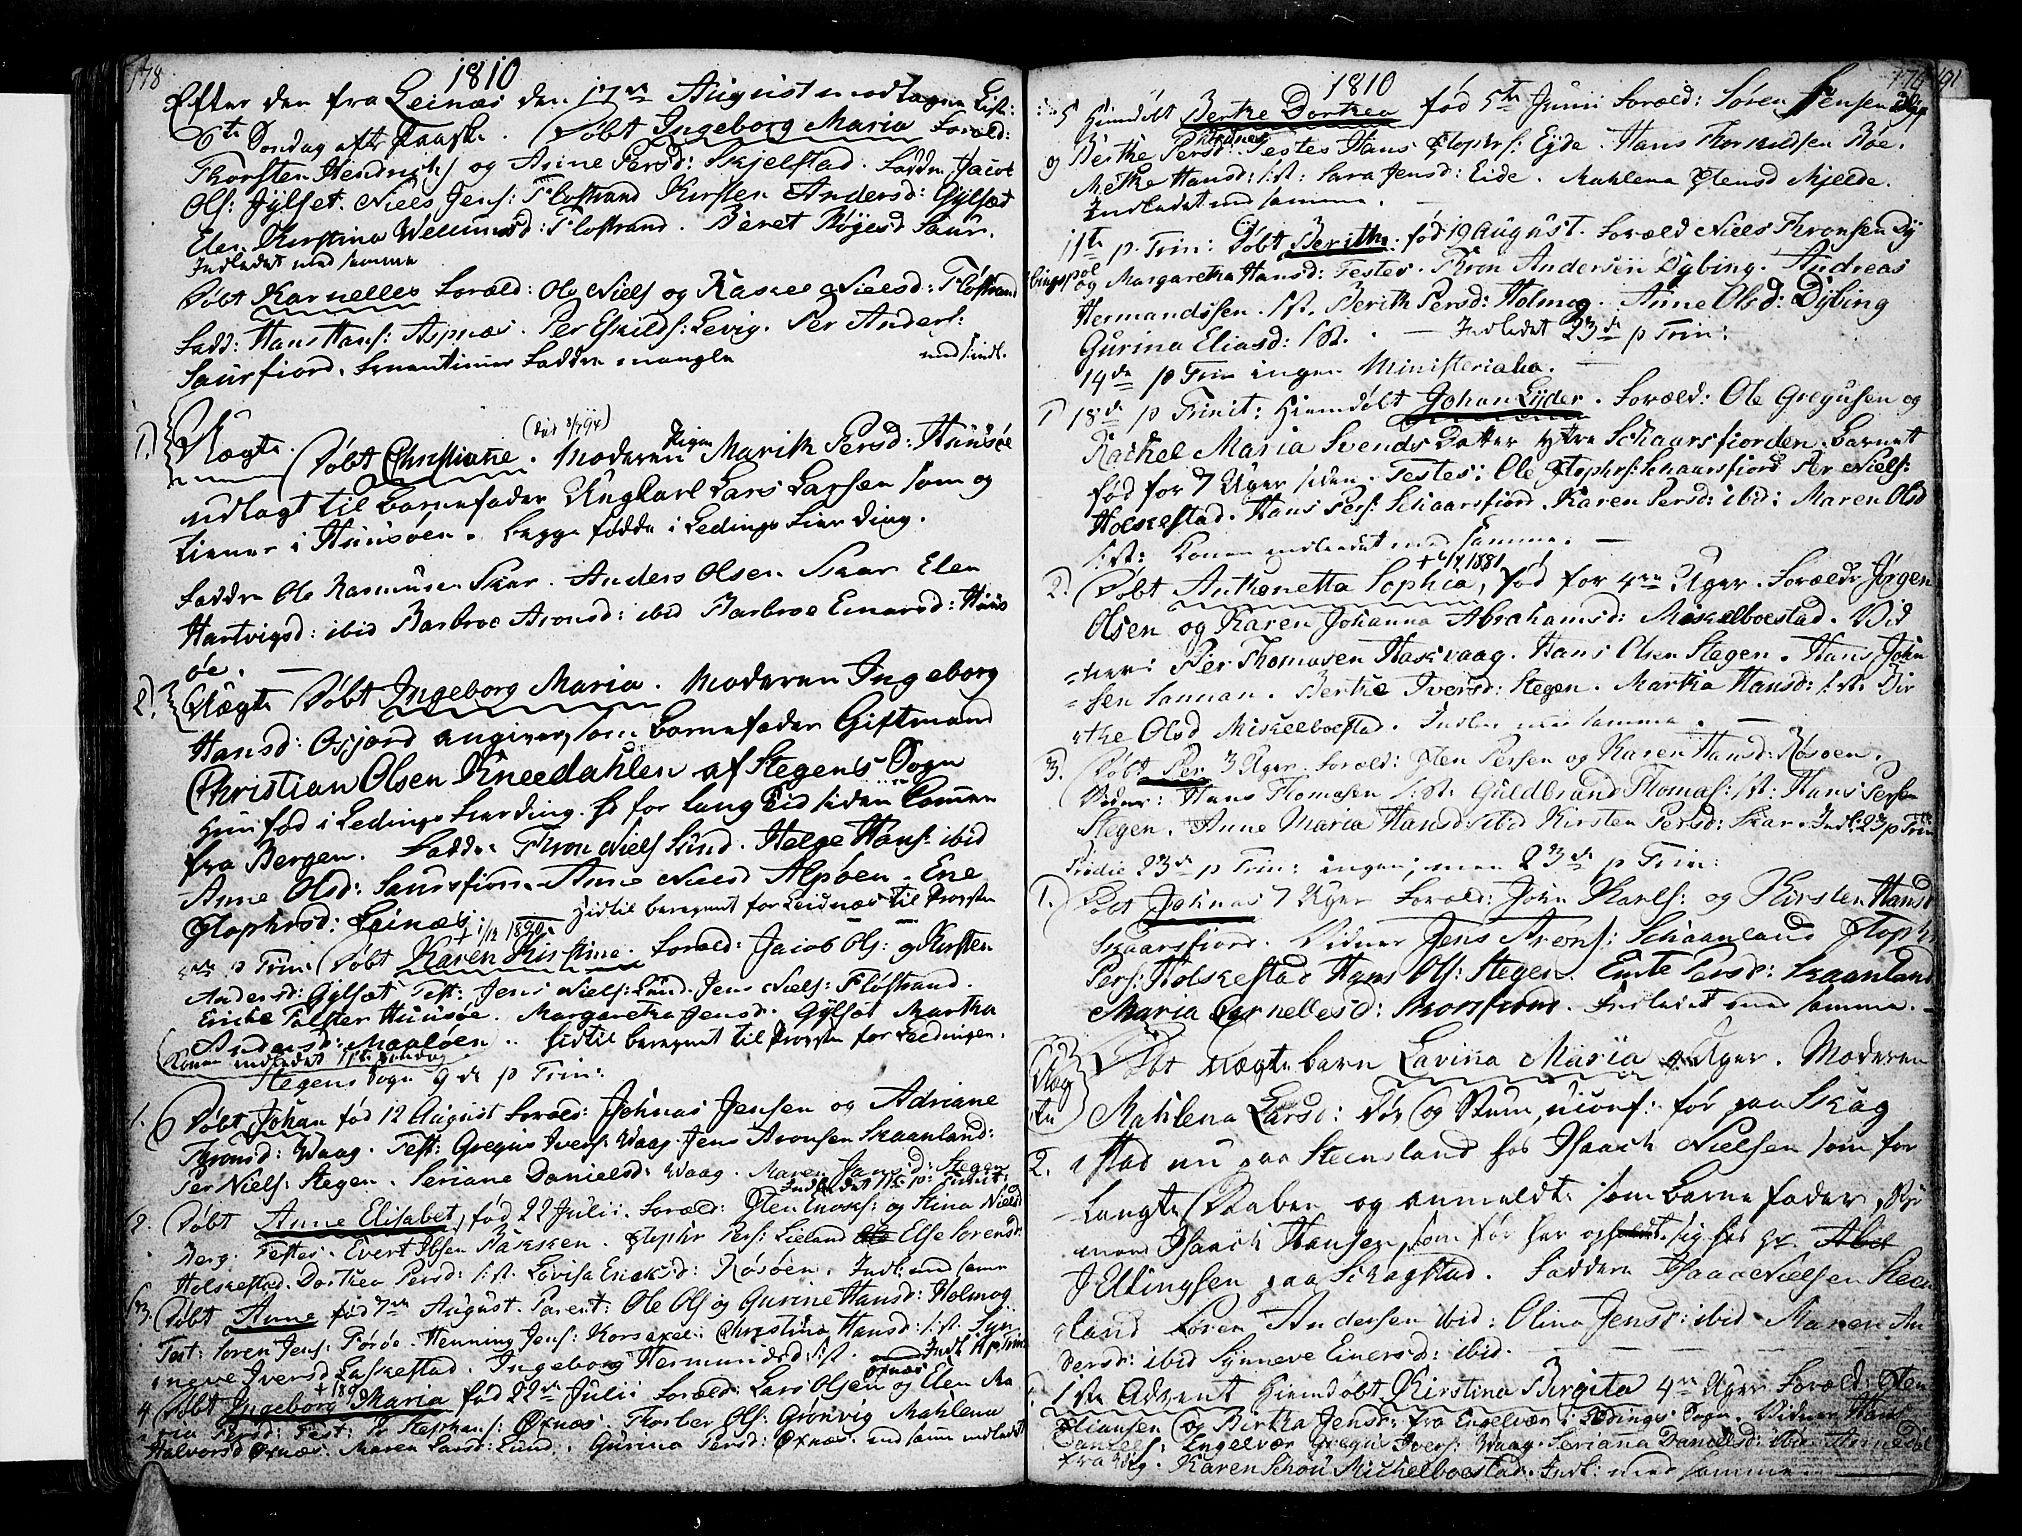 178
1810
Efter den fra Leines den 17de August modtagne List:
6te Søndag efter Paaske. Døbt Ingeborg Maria Foræld:
Thorsten Hendrichs og Anne Persd: Skjelstad. Fadder Jacob
Ols: Jylset. Niels Jens: Flostrand Kirsten Andersd: Gylset
Elen Kirstina Flostrand. Beret Saur.
Indledet med samme
Døbt Karnelles Foræld: Ole Niels og Nielsd: Flostrand
Fadd: Hans Hans: Aspnæs. Per Eskilds: Levig. Per Anders:
Saursfiord. Fruentimer Faddre mangle med s: indl.
1.) Uægte. Døbt Christiane. Moderen Pigen Marith Persd: Huusøe
udlagt til barnefader Ungkarl Lars Larsen som og
tiener i Huusøen. begge fødde i Ledings Fierding.
Faddre Ole Rasmusen Skar. Anders Olsen Skar Elen
Hartvigsd: ibid Barbroe Aronsd: ibid Barbroe Einarsd: Huus
øe.
2.) Uægte Døbt Ingeborg Maria. Moderen Ingeborg
Hansd: Osjord angiver som Barnefader Giftmand
Christian Olsen Kneedahlen af Stegens Sogn
Hun fød i Ledings Fierding. for lang Tid siden kommen
fra Bergen. Fadder Thron Niels Sund. Helge Hans: ibid
Anne Olsd: Saursfiord. Anne Nielsd Alpøen. Ene
Stophersd: Leinæs. Hidtil beregnet for Leidnæs til Provsten
+ 1/12 1890
p Trin: Døbt Karen Kirstine. Foræld: Jacob Ols: og Kirsten
Andersd: Gylset Test: Jens Niels: Lund. Jens Niels: Flostrand.
Ericke Falster Huusøe. Margaretha Jensd: Gylset Martha
Andersd: Maaløen. Hidtil beregnet til Provsten for Leedingen.
Konen indledet 11te Søndag
Stegens Sogn 9de p Trin:
1. Døbt Johan fød 12 August Foræld: Johnas Jensen og Adriane
Thronsd: Waag. Test: Gregus Ivers: Waag. Jens Aronsen Skaanland:
Per Niels: Stegen. Seriane Danielsd: Waag. Maren Jansd: Stegen
Indledet 11te p: Trinit:
2. Døbt Anne Elisabet, fød 22 Julii. Foræld: Sten Enoks: og Stina Nielsd
Berg. Testes. Evert Ibsen Bakken. Stophr Pers: Lieland Else Sørensd:
Holkestad. Dorthea Persd: s: st. Lovisa Ericksd: Røsøen. Indl: med samme
3. Døbt Anne fød 7de August. Parent: Ole Ols og Gurine Hansd: Holmog
Test: Søren Jens: Førøe. Henning Jens: Korsaxel. Christina Hansd: s: st. Syn
neve Iversd Laskestad. Ingeborg Hermundsd: s: st. Indl: 11 p Trin:
4. Døbt Ingeborg Maria fød 22de Julii Foræld: Lars Olsen Øxnæs og Elen Ma
ria Persd: Test: Pr Stephans: Øxnæs. Thorber Ols: Grønvig Mahlena
Halvorsd Øxnæs. Maren Larsd: Lund. Gurina Persd: Øxnæs. med samme indledet
1810
5 Hiemdøbt Berthe Dorthea fød 5te Junii Foræld: Søren Jensen
og Berthe Persd: Testes Hans Stophrs: Eyde. Hans Thorkildsen Bøe.
Methe Hansd: s: st: Sara Jensd: Eide. Mahlena Stensd Mjelde.
Indledet med samme.
11te p. Trin: Døbt Berith, fød 19 August. Foræld Niels Thronsen Dy
bingspol og Margaretha Hansd: Testes. Thron Andersen Dybing. Andreas
Hermandssen. s: st. Berith Persd: Holmog. Anne Olsd: Dybing
Gurina Eliasd: s: st. - Indledet 23de p Trin:
14de p Trin ingen Ministerialia.
1 18de p Trinit: Hiemdøbt Johan Eyder. Foræld: Ole Gregusen og
Rachel Maria Svends Datter ytre Schaarsfiorden. barnet
fød for 7 Uger siden. Testes: Ole Stophrs: Schaarsfiord Per Niels:
Holkestad. Hans Pers: Schaarsfiord. Karen Persd: ibid: Maren Olsd
s: st: Konen indleedet med samme.
2. Døbt Anthonetta Sophia, fød for 4re Uger. Forældr Jørgen
Olsen og Karen Johanna Abrahamsd: Miskelboestad. Vid
ner: Per Thomasen Haskvaag. Hans Olsen Stegen. Hans John
sen Sannan. Berthe Iversd: Stegen. Martha Hansd: s: st. Bir
the Olsd Miskelboestad. Indled med samme.
3. Døbt Per 3 Uger. Foræld: Sten Persen og Karen Hansd: Røsøen.
Vidner: Hans Thomasen s: st. Guldbrand Thomas: s: st: Hans Persen
Stegen. Anne Maria Hansd: ibid Kirsten Persd: Skar. Indl: 23 p Trin
23de p Trin: ingen; men 23de p Trin:
1. Døbt Johnas 7 Uger Foræld: John Karls: og Kirsten Hansd
Skaarsfiord. Vidner Jens Arons: Schaanland Stophr
Pers: Holskestad Hans Ols: Stegen. Ente Persd: Skaanland
Maria Cornellesd: Skorsfiord. Indledet med samme.
Uæg
te
Døbt uægte barn Lavina Maria Uger. Moderen
Mahlena Larsd: Døv og Stum, uconf: før paa Skag
2. stad nu paa Steensland hos Isaach Nielsen som for
langte Daaben og anmeldte som barne fader, Gift
mand Isaach Hansen, som før har opholdt sig hos
J Ellingsen paa Schagstad. Faddere Isaac Nielsen Steen
land Søren Andersen ibid: Olina Jensd: ibid Maren An
dersd: ibid Synneve Einersd: ibid.
1ste Advent Hiemdøbt Kirstina Birgita 4re Uger Foræld: Sten
Eliansen og Birtha Jensd: fra Engelvær i Lødings Sogn. Vidner Hans
Daniels: Engelvær Gregus Ivers: Waag. Serianna Danielsd: ibid
Karen Schøu Mickelboestad. Indl: med samme